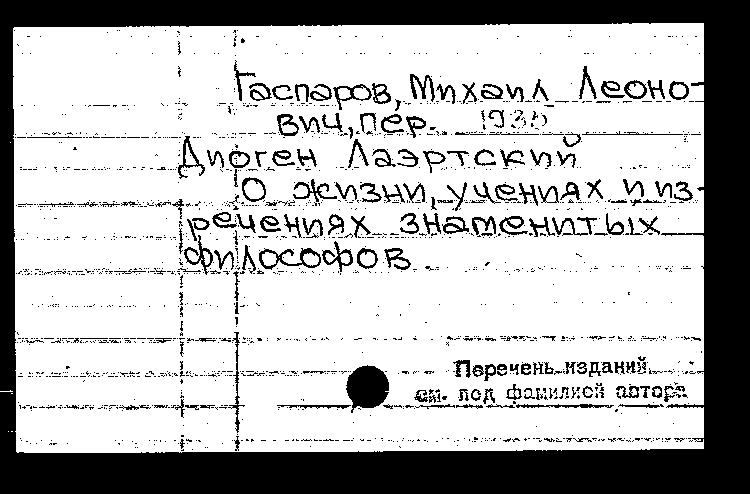 Гаспаров, Михаил Леоно-
вич, пер. 1935
Диоген Лаэртский
О жизни, учениях и из-
речениях знаменитых
философов
Перечень изданий
см. под фамилией автора